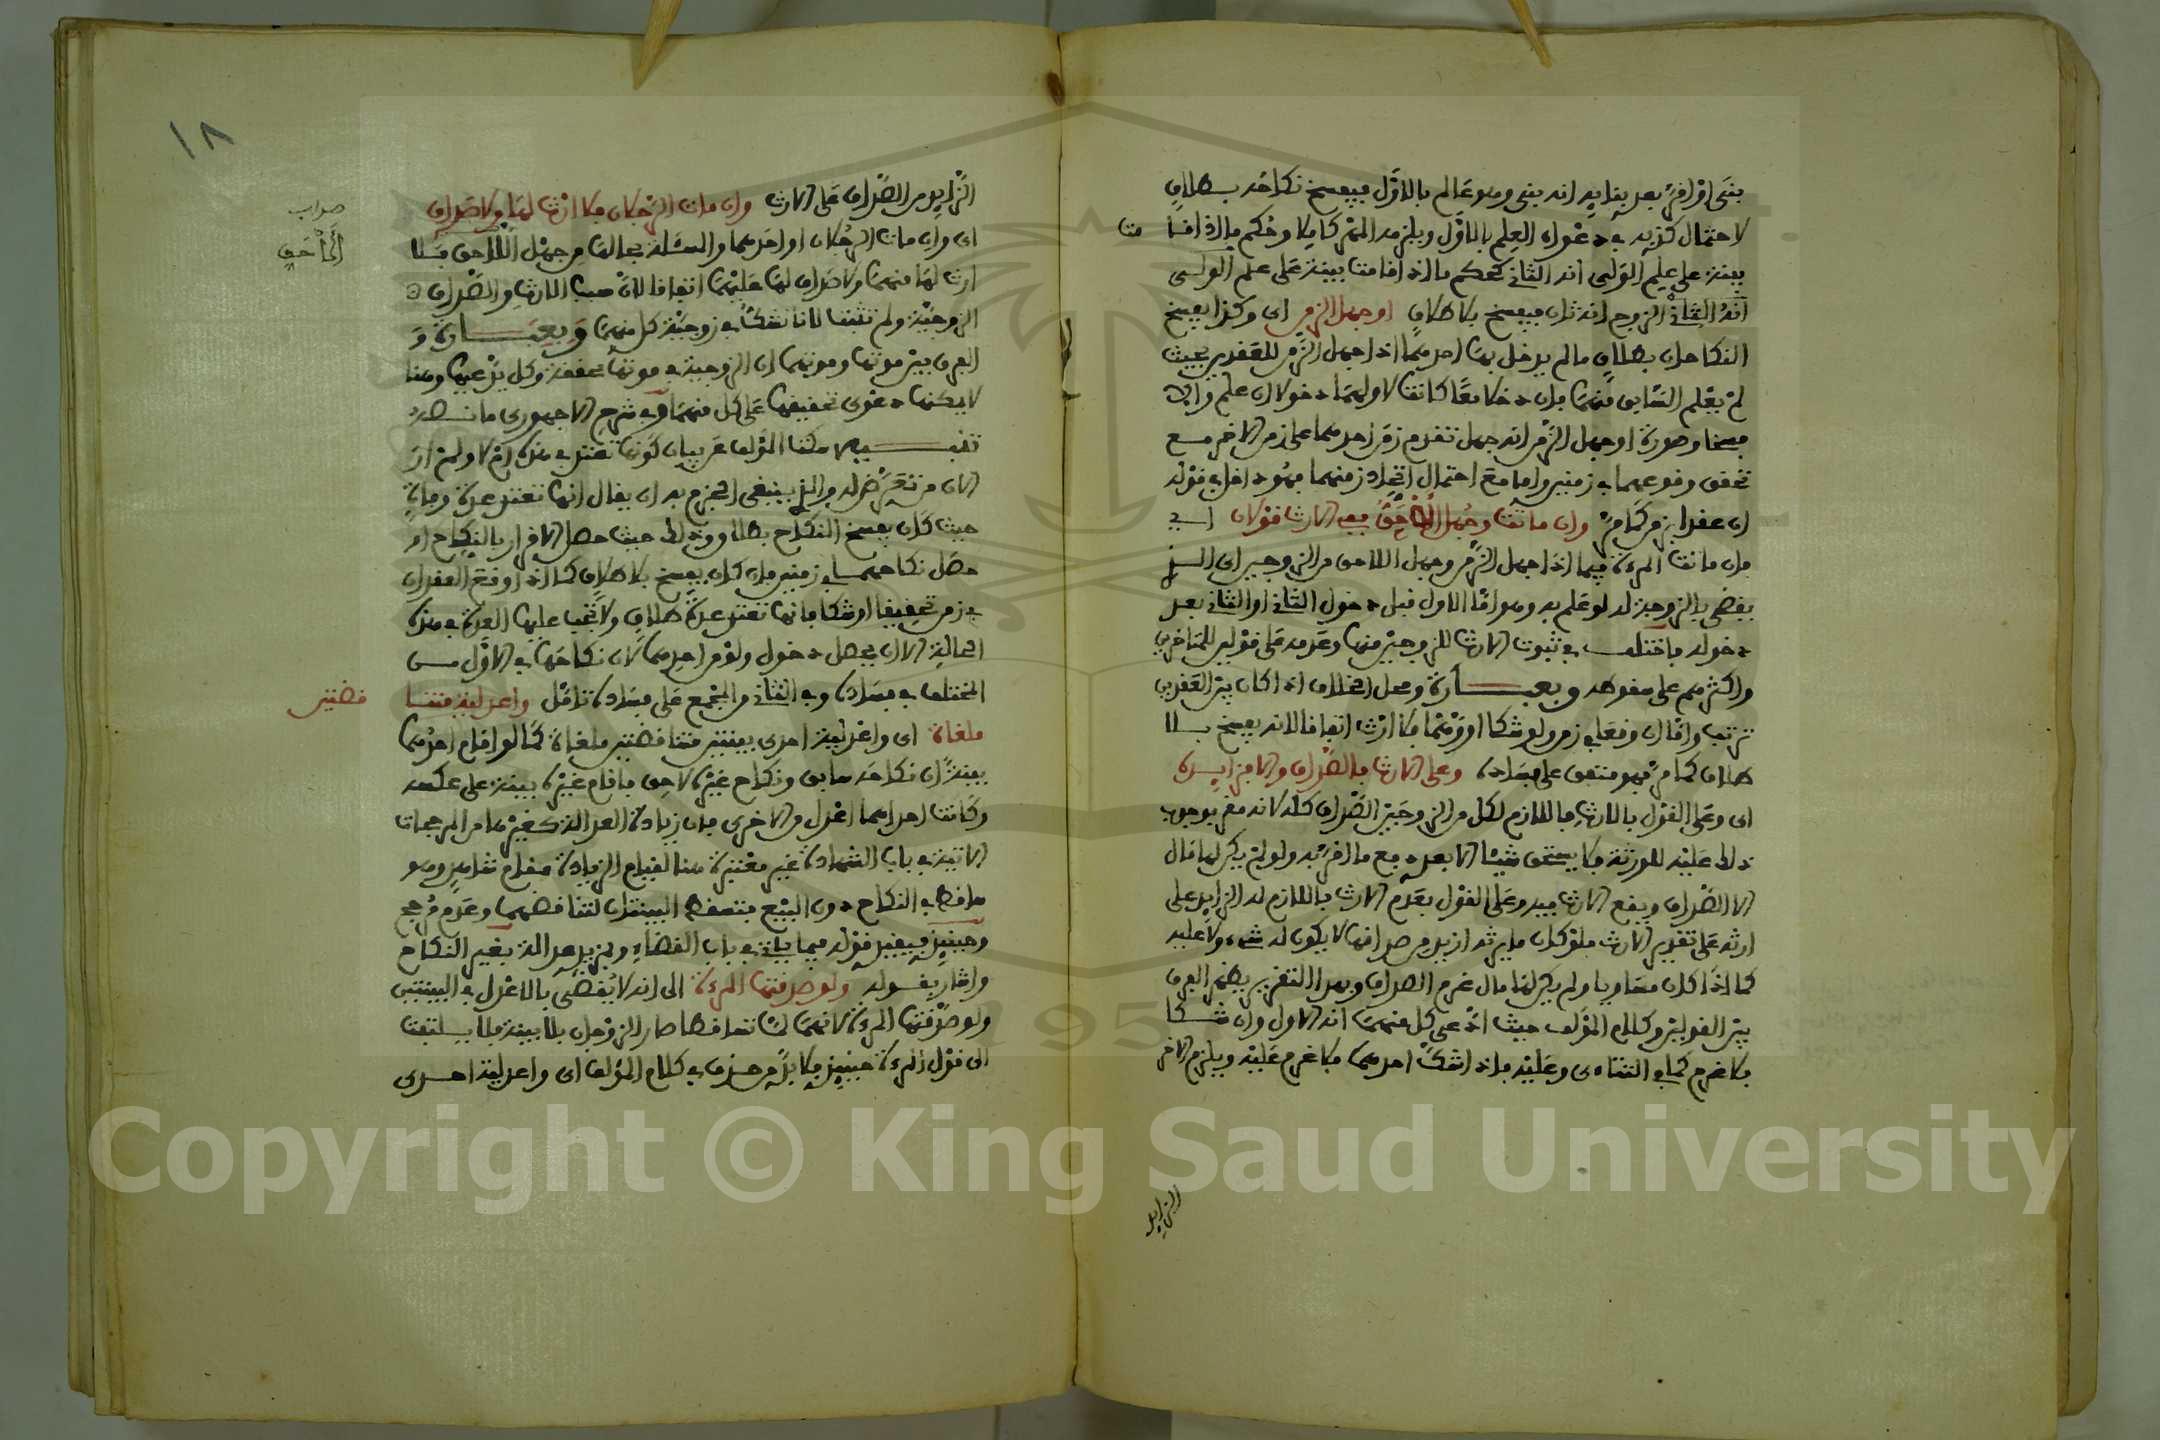 بنى او اقر بعد بنايه انه بنى وهو عالم بالاول فيفسخ نكاحه بطلاق
لاحتمال كذبه في دعوى العلم بالاول ويلزمه المهر كاملا وحكم ما اذا اقامت
بينة على علم الولي انه الثاني كحكم ما اذا اقامت بينة على علم الولي
انه الثاني الزوج انه ثان فيفسخ بلا طلاق او جهل الزمن اي وكذا يفسخ
النكاحان بطلاق ما لم يدخل بها احدهما اذا جهل الزمن للعقدين بحيث
لم يعلم السابق منهما فان دخلا معا كانت لاولهما دخولا ان علم والا
فسخا وصورة او جهل الزمن انه جهل تقدم زمن احدهما على زمن الاخر مع
تحقق وقوعهما في زمنين واما مع احتمال اتحاد زمنهما فهو داخل في قوله
ان عقدا بزمن كما مر وان ماتت وجهل الاحق ففي الارث قولان اي
فان ماتت المرءة فيما اذا جهل الزمن وجهل اللاحق من الزوجين اي الذي
يقضى بالزوجية له لو علم به وهو اما الاول قبل دخول الثاني او الثاني بعد
دخوله فاختلف في ثبوت الارث للزوجين منها وعدمه على قولين للمتاخرين
واكثرهم على سقوطه وبعبارة ومحل الخلاف اذا كان بين العقدين
ترتب واما ان وقعا في زمن ولو شكا او وهما فلا ارث اتفاقا لانه يفسخ بلا
طلاق كما مر فهو متفق على فساده وعلى الارث فالصداق والا فزايده
اي وعلى القول بالارث فاللازم لكل من الزوجين الصداق كله لانه مقر بوجوب
ذلك عليه للورثة فلا يستحق شيئا الا بعد دفع ما اقر به ولو لم يكن لها مال
الا الصداق ويقع الارث فيه وعلى القول بعدم الارث فاللازم له الزايد على
ارثه على تقدير الارث فلو كان ما يرثه ازيد من صداقها لا يكون له شيء ولا عليه
كما اذا كان مساويا ولم يكن لها مال غرم الصداق وبهذا التقرير يظهر الفرق
بين القولين وكلام المؤلف حيث ادعى كل منهما انه الاول وان شكا
فلا غرم كما في التتاءي وعليه فاذا شك احدهما فلا غرم عليه ويلزم الاخر
الزايد
١٨
الزايد من الصداق على الارث وان مات الرجلان فلا ارث لها ولا صداق
اي وان مات الرجلان او احدهما والمسئلة بحالها من جهل اللاحق فلا
ارث لها منهما ولا صداق لها عليهما اتفاقا لان سبب الارث والصداق
الزوجية ولم تثبت لانا نشك في زوجية كل منهما وبعبارة و
الفرق بين موتها وموتهما ان الزوجية في موتها محققة وكل يدعيها وهنا
لا يمكنها دعوى تحقيقها على كل منهما وفي شرح الاجهوري ما نصه
تنبيه سكت المؤلف عن بيان كونها تعتد في هذه ام لا ولم ار
الان من تعرض له والذي ينبغي الجزم به ان يقال انها تعتد عدة وفاة
حيث كان يفسخ النكاح بطلاق وذلك حيث حصل الاقرار بالنكاح او
حصل نكاحهما في زمنين فان كان يفسخ بلا طلاق كما اذا اوقع العقدان
في زمن تحقيقا او شكا فانها تعتد عدة طلاق ولا تجب عليها العدة في هذه
الحالة الا ان يحصل دخول ولو من احدهما لان نكاحها في الاول من
المختلف في فساده وفي الثاني من المجمع على فساده تامل واعدلية متناقضتين
ملغاة اي واعدلية احدى بينتين متناقضتين ملغاة كما لو اقام احدهما
بينة ان نكاحه سابق ونكاح غيره لاحق فاقام غيره بينة على عكسه
وكانت احداهما اعدل من الاخرى فان زيادة العدالة كغيرها من المرجحات
الاتية في باب الشهادة غير معتبرة هنا لقيام الزيادة مقام شاهد وهو
ساقط في النكاح دون البيع فتسقط البينتان لتناقضهما وعدم مرجح
وحينئذ فيقيد قوله فيما ياتي في باب القضاء وبمزيد عدالة بغير النكاح
واشار بقوله ولو صدقتها المرءة الى انه لا يقضى بالاعدل في البينتين
ولو صدقتها المرءة لانهما لما تساقطا صار الزوجان بلا بينة فلا يلتفت
الى قول المرءة حينئذ فلا بد من حذف في كلام المؤلف اي واعدلية احدى
صوابه
الاحق